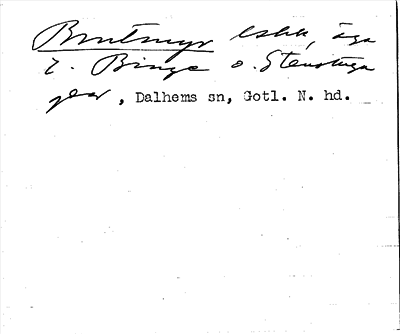 Brutmyr lshl, äga
t. Binge o. Stenstuga
gdar, Dalhems sn, Gotl. N. hd.